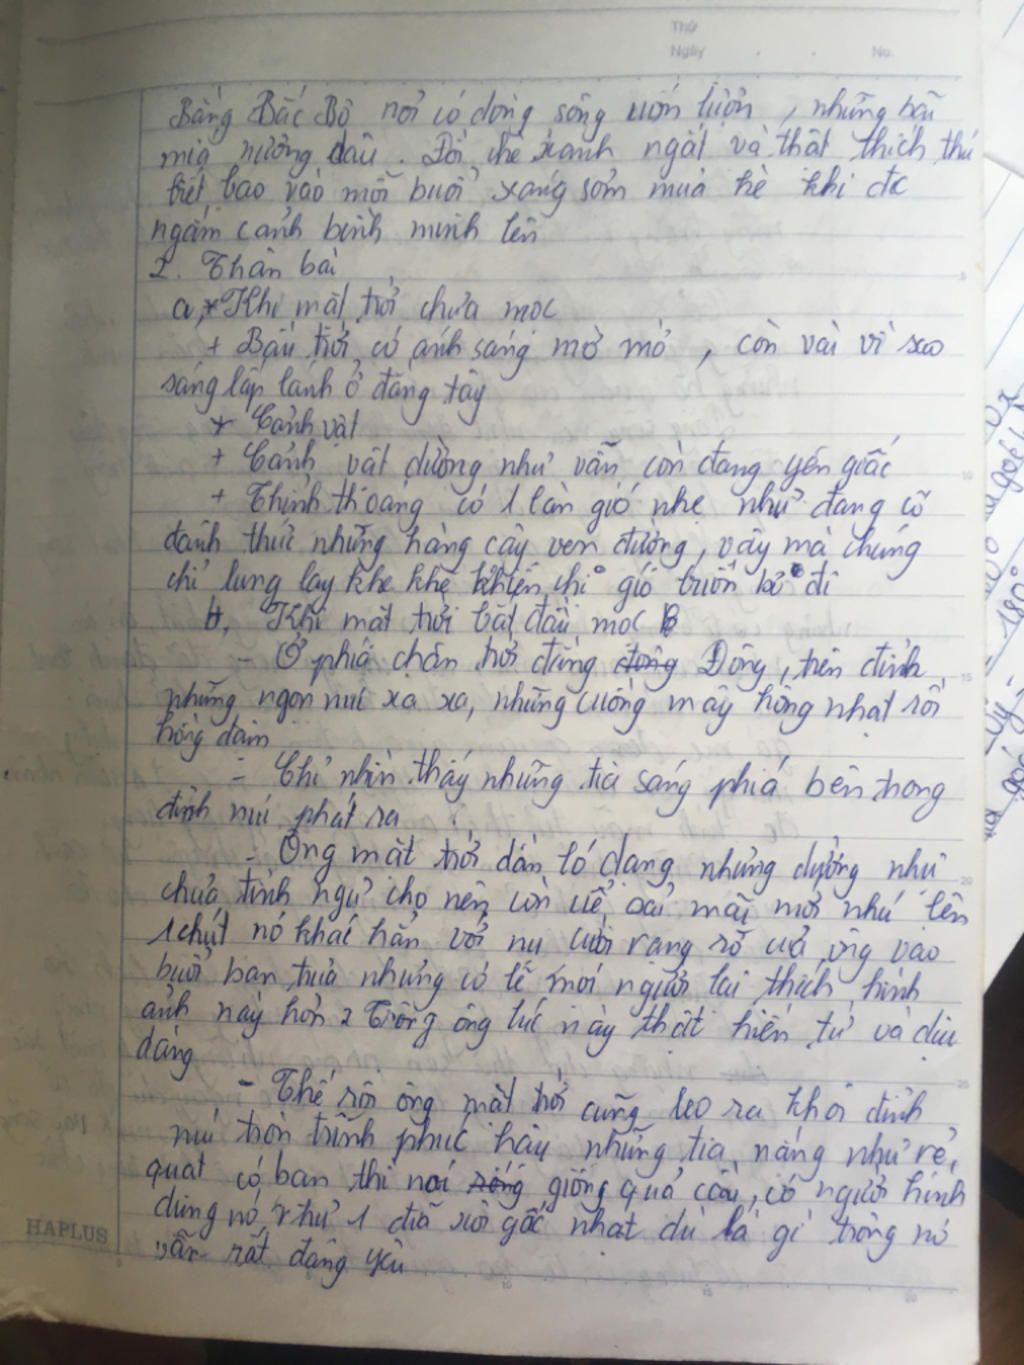 Thứ
Ngày No.
Bằng Bắc Bộ nơi có dòng sông uốn lượn, những bãi
mía nương dâu. Đồi chè xanh ngát và thật thích thú
biết bao vào mỗi buổi sáng sớm mùa hè khi đc
ngắm cảnh bình minh lên
2. Thân bài
a, * Khi mặt trời chưa mọc
+ Bầu trời có ánh sáng mờ mờ, còn vài vì sao
sáng lấp lánh ở đằng tây
* Cảnh vật
+ Cảnh vật dường như vẫn còn đang yên giấc
+ Thỉnh thoảng có 1 làn gió nhẹ như đang cố
đánh thức những hàng cây ven đường, vậy mà chúng
chỉ lung lay khe khẽ khiến chị gió buồn bỏ đi
b, Khi mặt trời bắt đầu mọc
- Ở phía chân trời đằng đông Đông, trên đỉnh
những ngọn núi xa xa, những cuộng mây hồng nhạt rồi
hồng đậm
- Chỉ nhìn thấy những tia sáng phía bên trong
đỉnh núi phát ra
- Ông mặt trời dần ló dạng nhưng dường như
chưa tỉnh ngủ cho nên còn uể oải mãi mới nhú lên
1 chút nó khác hẳn với nụ cười rạng rỡ của ông vào
buổi ban trưa nhưng có lẽ mọi người lại thích hình
ảnh này hơn Trông ông lúc này thật hiền từ và dịu
dàng
- Thế rồi ông mặt trời cũng leo ra khỏi đỉnh
núi tròn trĩnh phúc hậu những tia nắng như rẻ
quạt có bạn thì nói giống quả cầu, có người hình
dung nó như 1 đĩa xôi gấc nhạt dù là gì trông nó
vẫn rất đáng yêu
HAPLUS